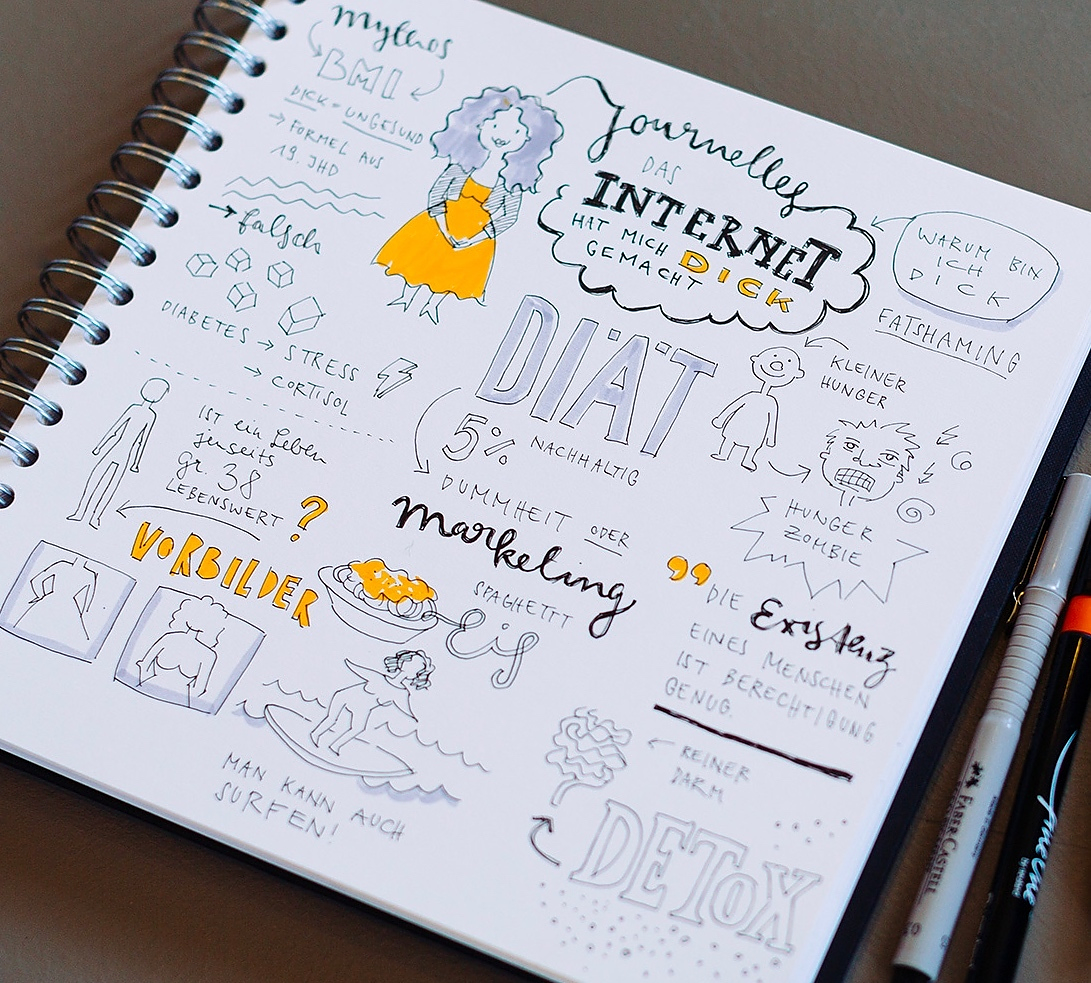 Mythos
BMI
DICK = UNGESUND
→ FORMEL AUS
19. JHD
→ falsch
DIABETES → STRESS
→ CORTISOL
Journelles
DAS
INTERNET
HAT MICH
GEMACHT DICK
WARUM BIN
ICH
DICK
FATSHAMING
KLEINER
HUNGER
HUNGER
ZOMBIE
DIÄT
5% NACHHALTIG
DUMMHEIT ODER
Marketing
ist ein Leben
jenseits
gr. 38
LEBENSWERT ?
VORBILDER
SPAGHETTI
Eis
MAN KANN AUCH
SURFEN!
" DIE Existenz
EINES MENSCHEN
IST BERECHTIGUNG
GENUG.
← REINER
DARM
DETOX
FABER CASTELL
fineline